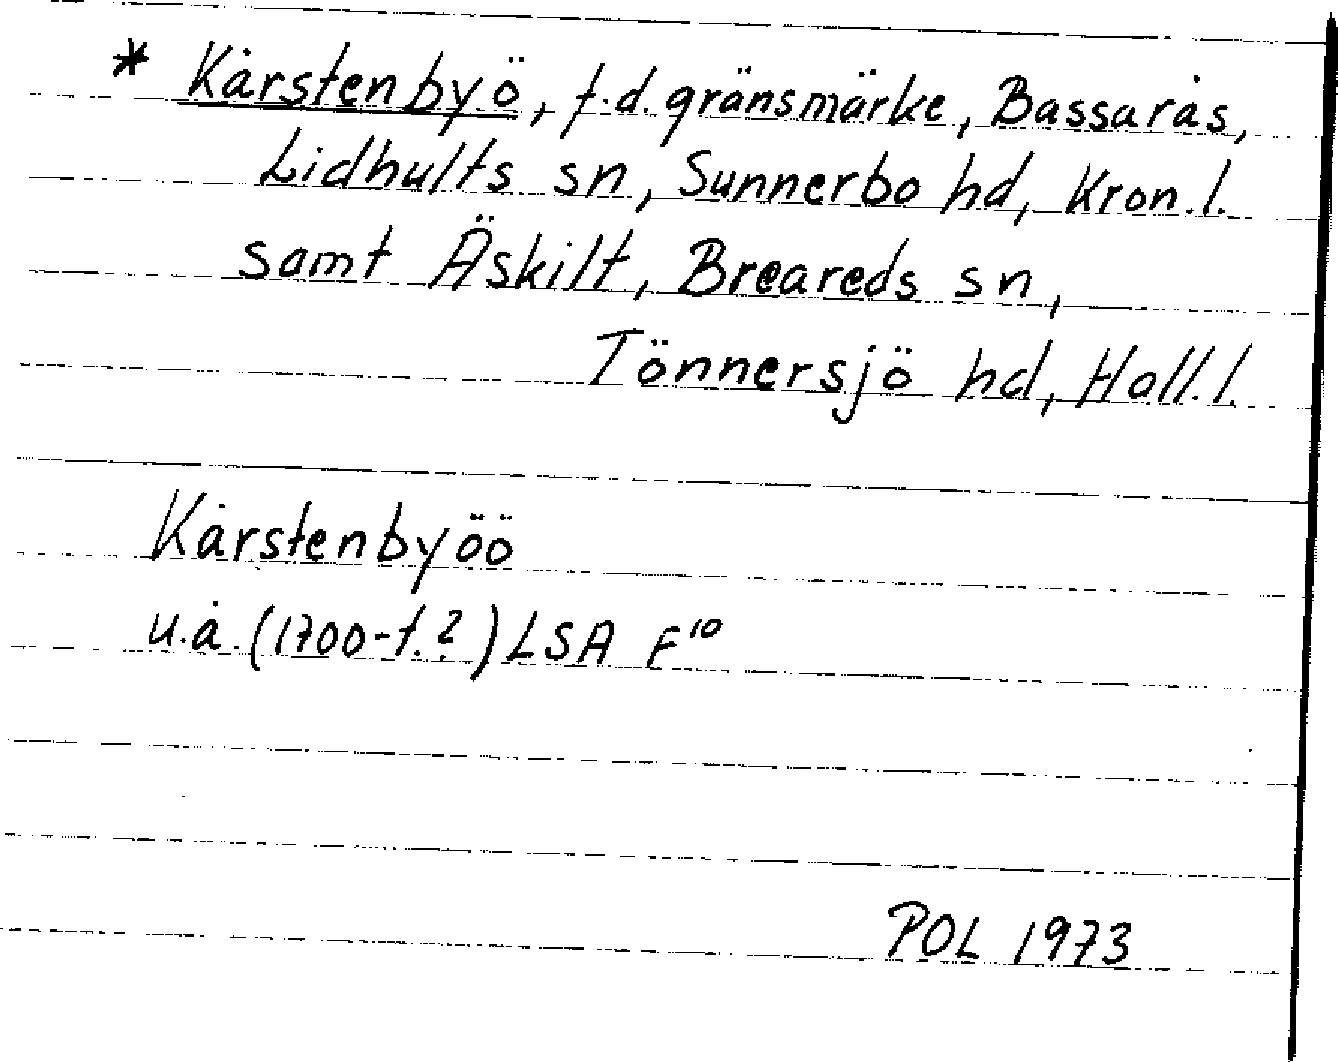 * Kårstenbyö, f.d. gränsmärke, Bassarås,
Lidhults sn, Sunnerbo hd, Kron.l.
samt Äskilt, Breareds sn,
Tönnersjö hd, Hall.l.
Kårstenbyöö
u.å. (1700-t.?) LSA F¹⁰
POL 1973